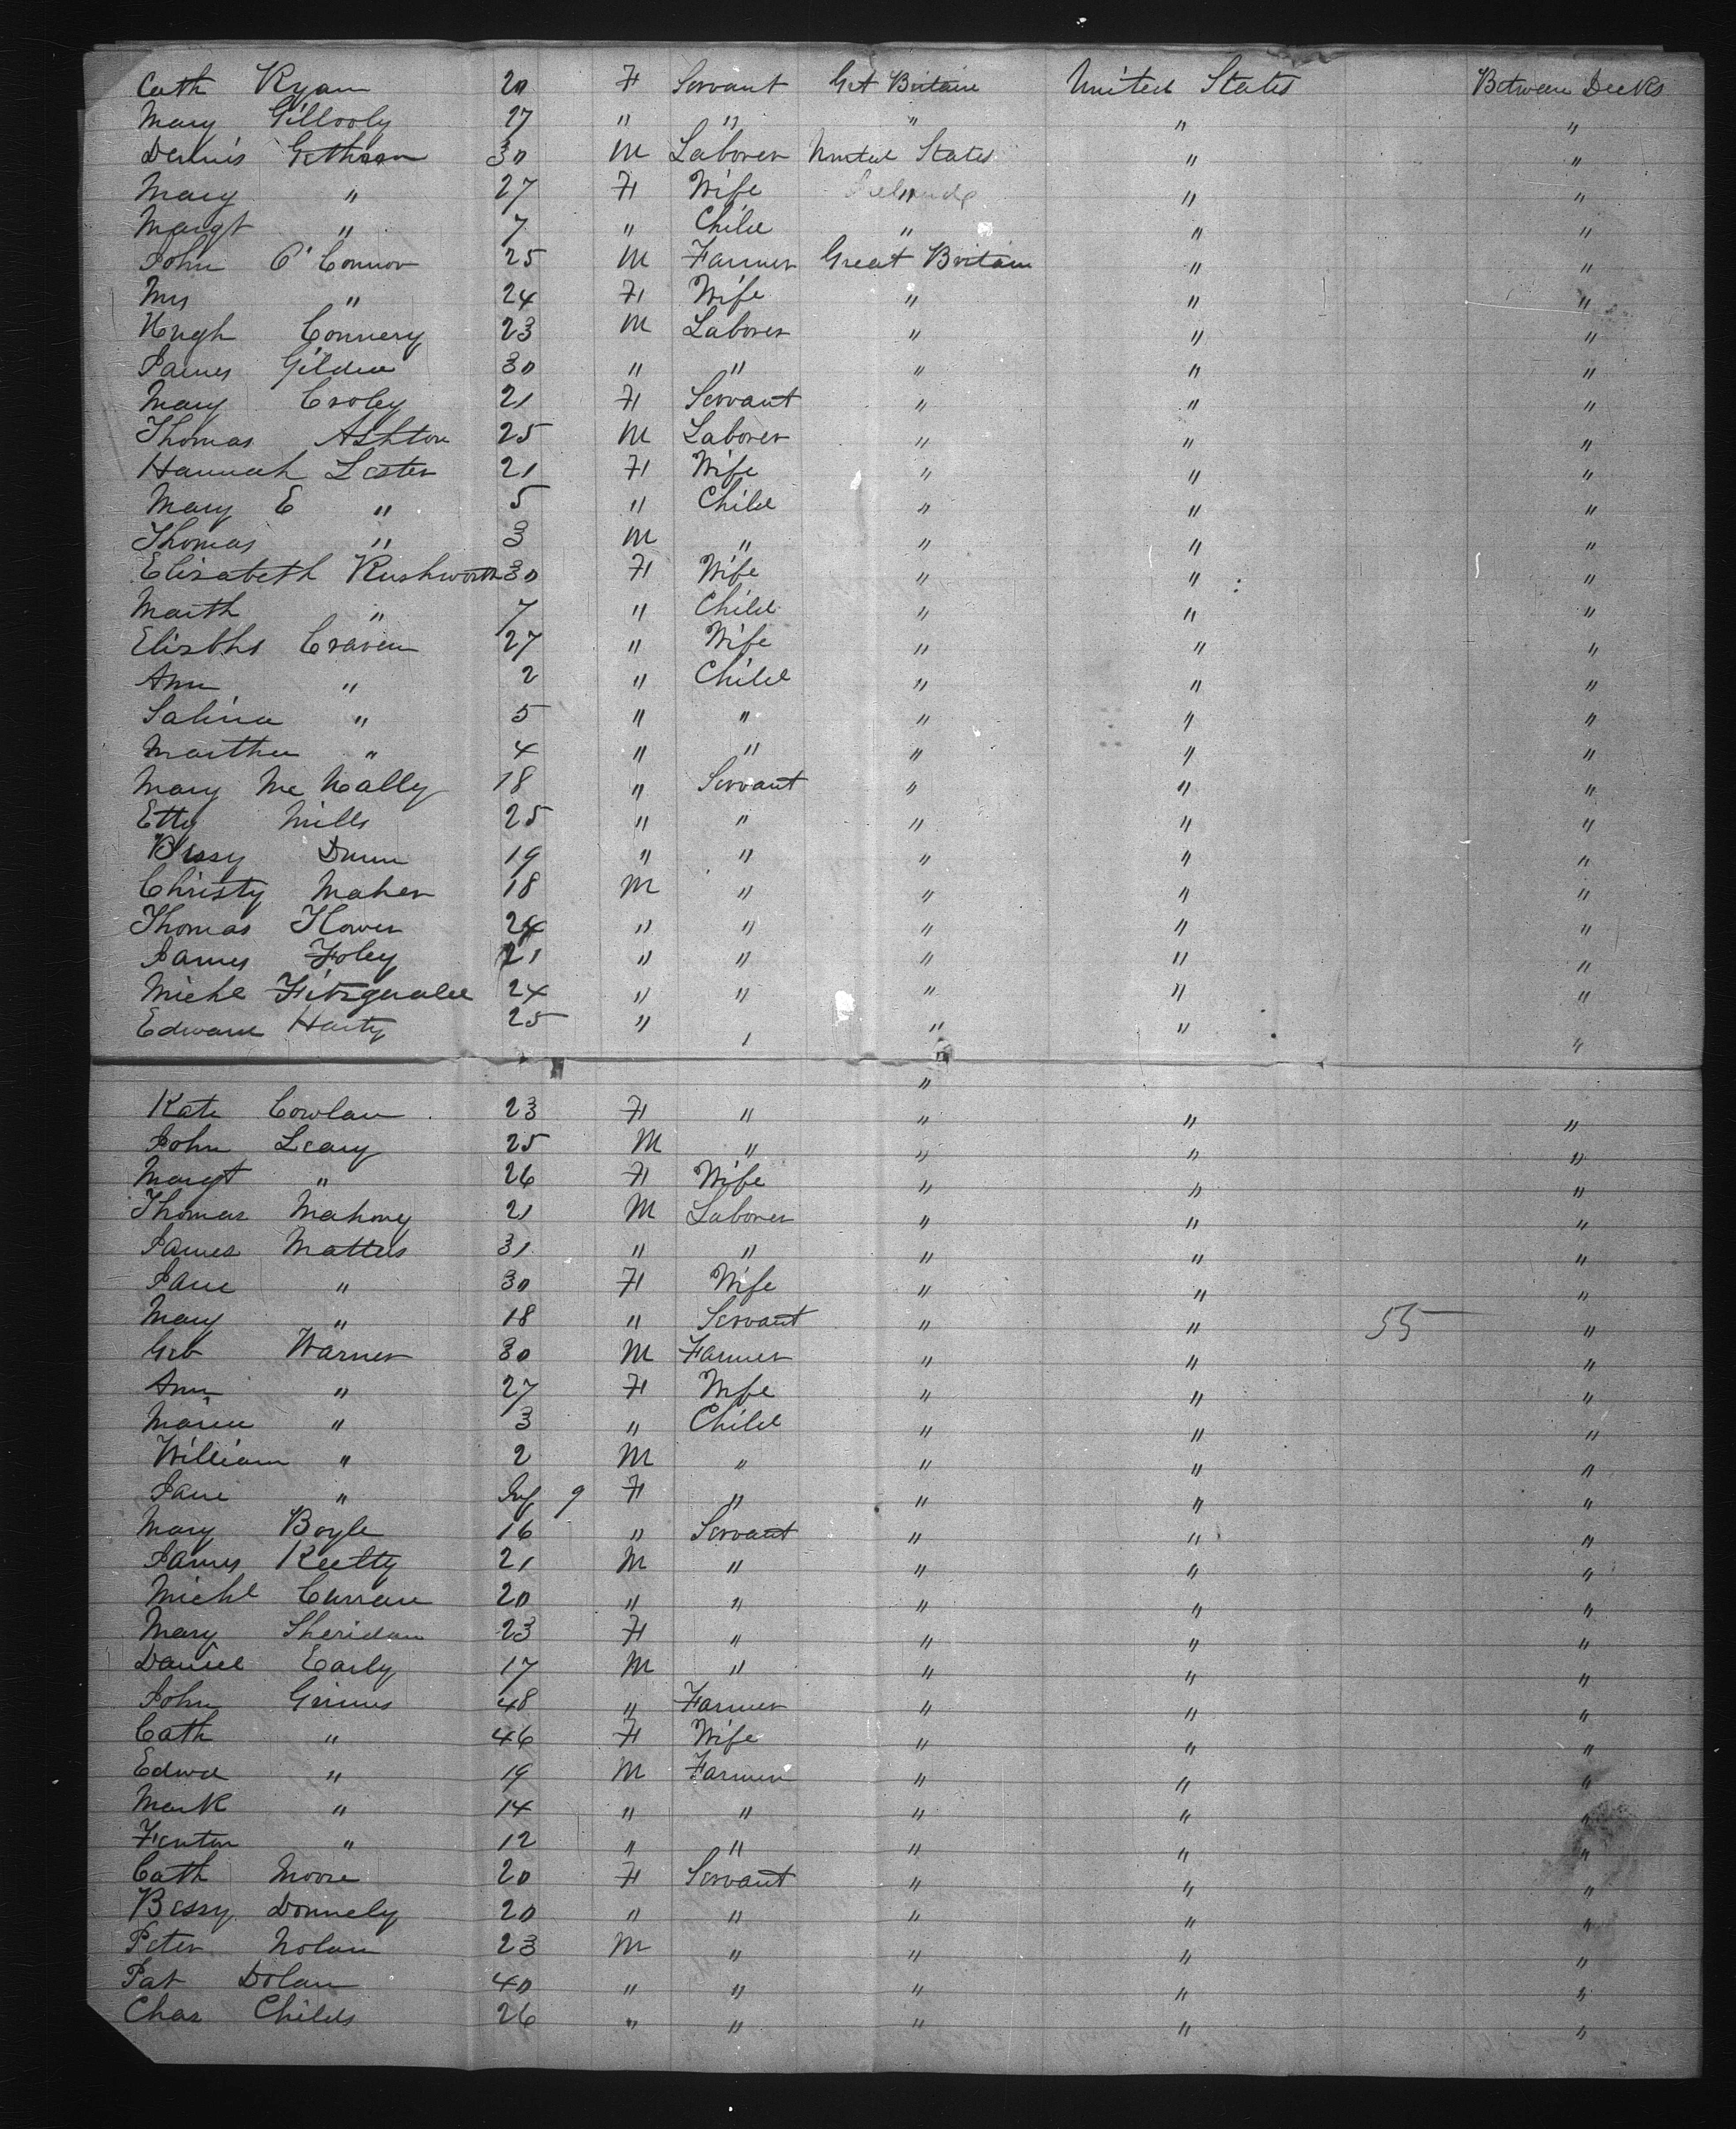 Cath Ryan 20 F Servant Gt Britain United States Between Decks
Mary Gillooly 27 " " " " "
Dennis 30 M Laborer United States " "
Mary " 27 F Wife " " "
Margt " 7 " Child " " "
John O'Connor 25 M Farmer Great Britain " "
Mrs " 24 F Wife " " "
Hugh Connery 23 M Laborer " " "
James Gildea 30 " " " " "
Mary Croley 21 F Servant " " "
Thomas Ashton 25 M Laborer " " "
Hannah Lester 21 F Wife " " "
Mary E " 5 " Child " " "
Thomas " 3 M " " " "
Elizabeth Rushworth 30 F Wife " " "
Marth " 7 " Child " " "
Elizbht Craven 27 " Wife " " "
Ann " 2 " Child " " "
Salina " 5 " " " " "
Martha " 4 " " " " "
Mary McNally 18 " Servant " " "
Etty Mills 25 " " " " "
Bessy Dunn 19 " " " " "
Christy Maher 18 M " " " "
Thomas 24 " " " " "
James Foley 21 " " " " "
Michl Fitzgerald 24 " " " " "
Edward Harty 25 " " " " "
"
Kate Cowlan 23 F " " " "
John Leary 25 M " " " "
Margt " 26 F Wife " " "
Thomas Mahony 21 M Laborer " " "
James Matters 31 " " " " "
Jane " 30 F Wife " " "
Mary " 18 " Servant " " 55 "
Geo Warner 30 M Farmer " " "
Ann " 27 F Wife " " "
Maria " 3 " Child " " "
William " 2 M " " " "
Jane " Inf 9 F " " " "
Mary Boyle 16 " Servant " " "
James 21 M " " " "
Michl Curran 20 " " " " "
Mary Sheridan 23 F " " " "
Daniel Early 17 M " " " "
John Grimes 48 " Farmer " " "
Cath " 46 F Wife " " "
Edwd " 19 M Farmer " " "
Mark " 14 " " " " "
Fenton " 12 " " " " "
Cath Moore 20 F Servant " " "
Bessy Donnely 20 " " " " "
Peter Nolan 23 M " " " "
Pat Dolan 40 " " " " "
Chas Childs 26 " " " " "